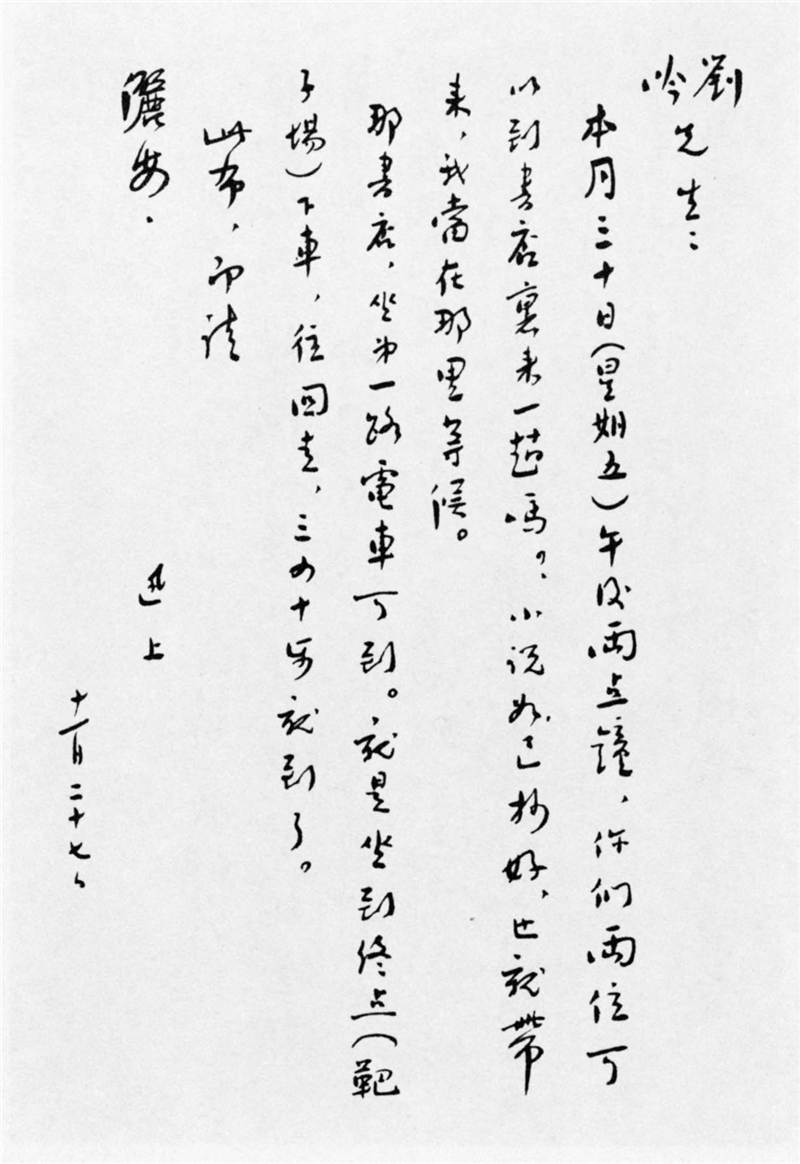 劉
吟 先生：
本月三十日(星期五)午后兩点鐘，你們兩位可
以到書店裏来一趟嗎？小说如已抄好，也就帶
来，我當在那里等候。
那書店，坐第一路電車可到。就是坐到終点(靶
子場)下車，往回走，三四十步就到了。
此布，即請
儷安。
迅 上
十一月二十七日